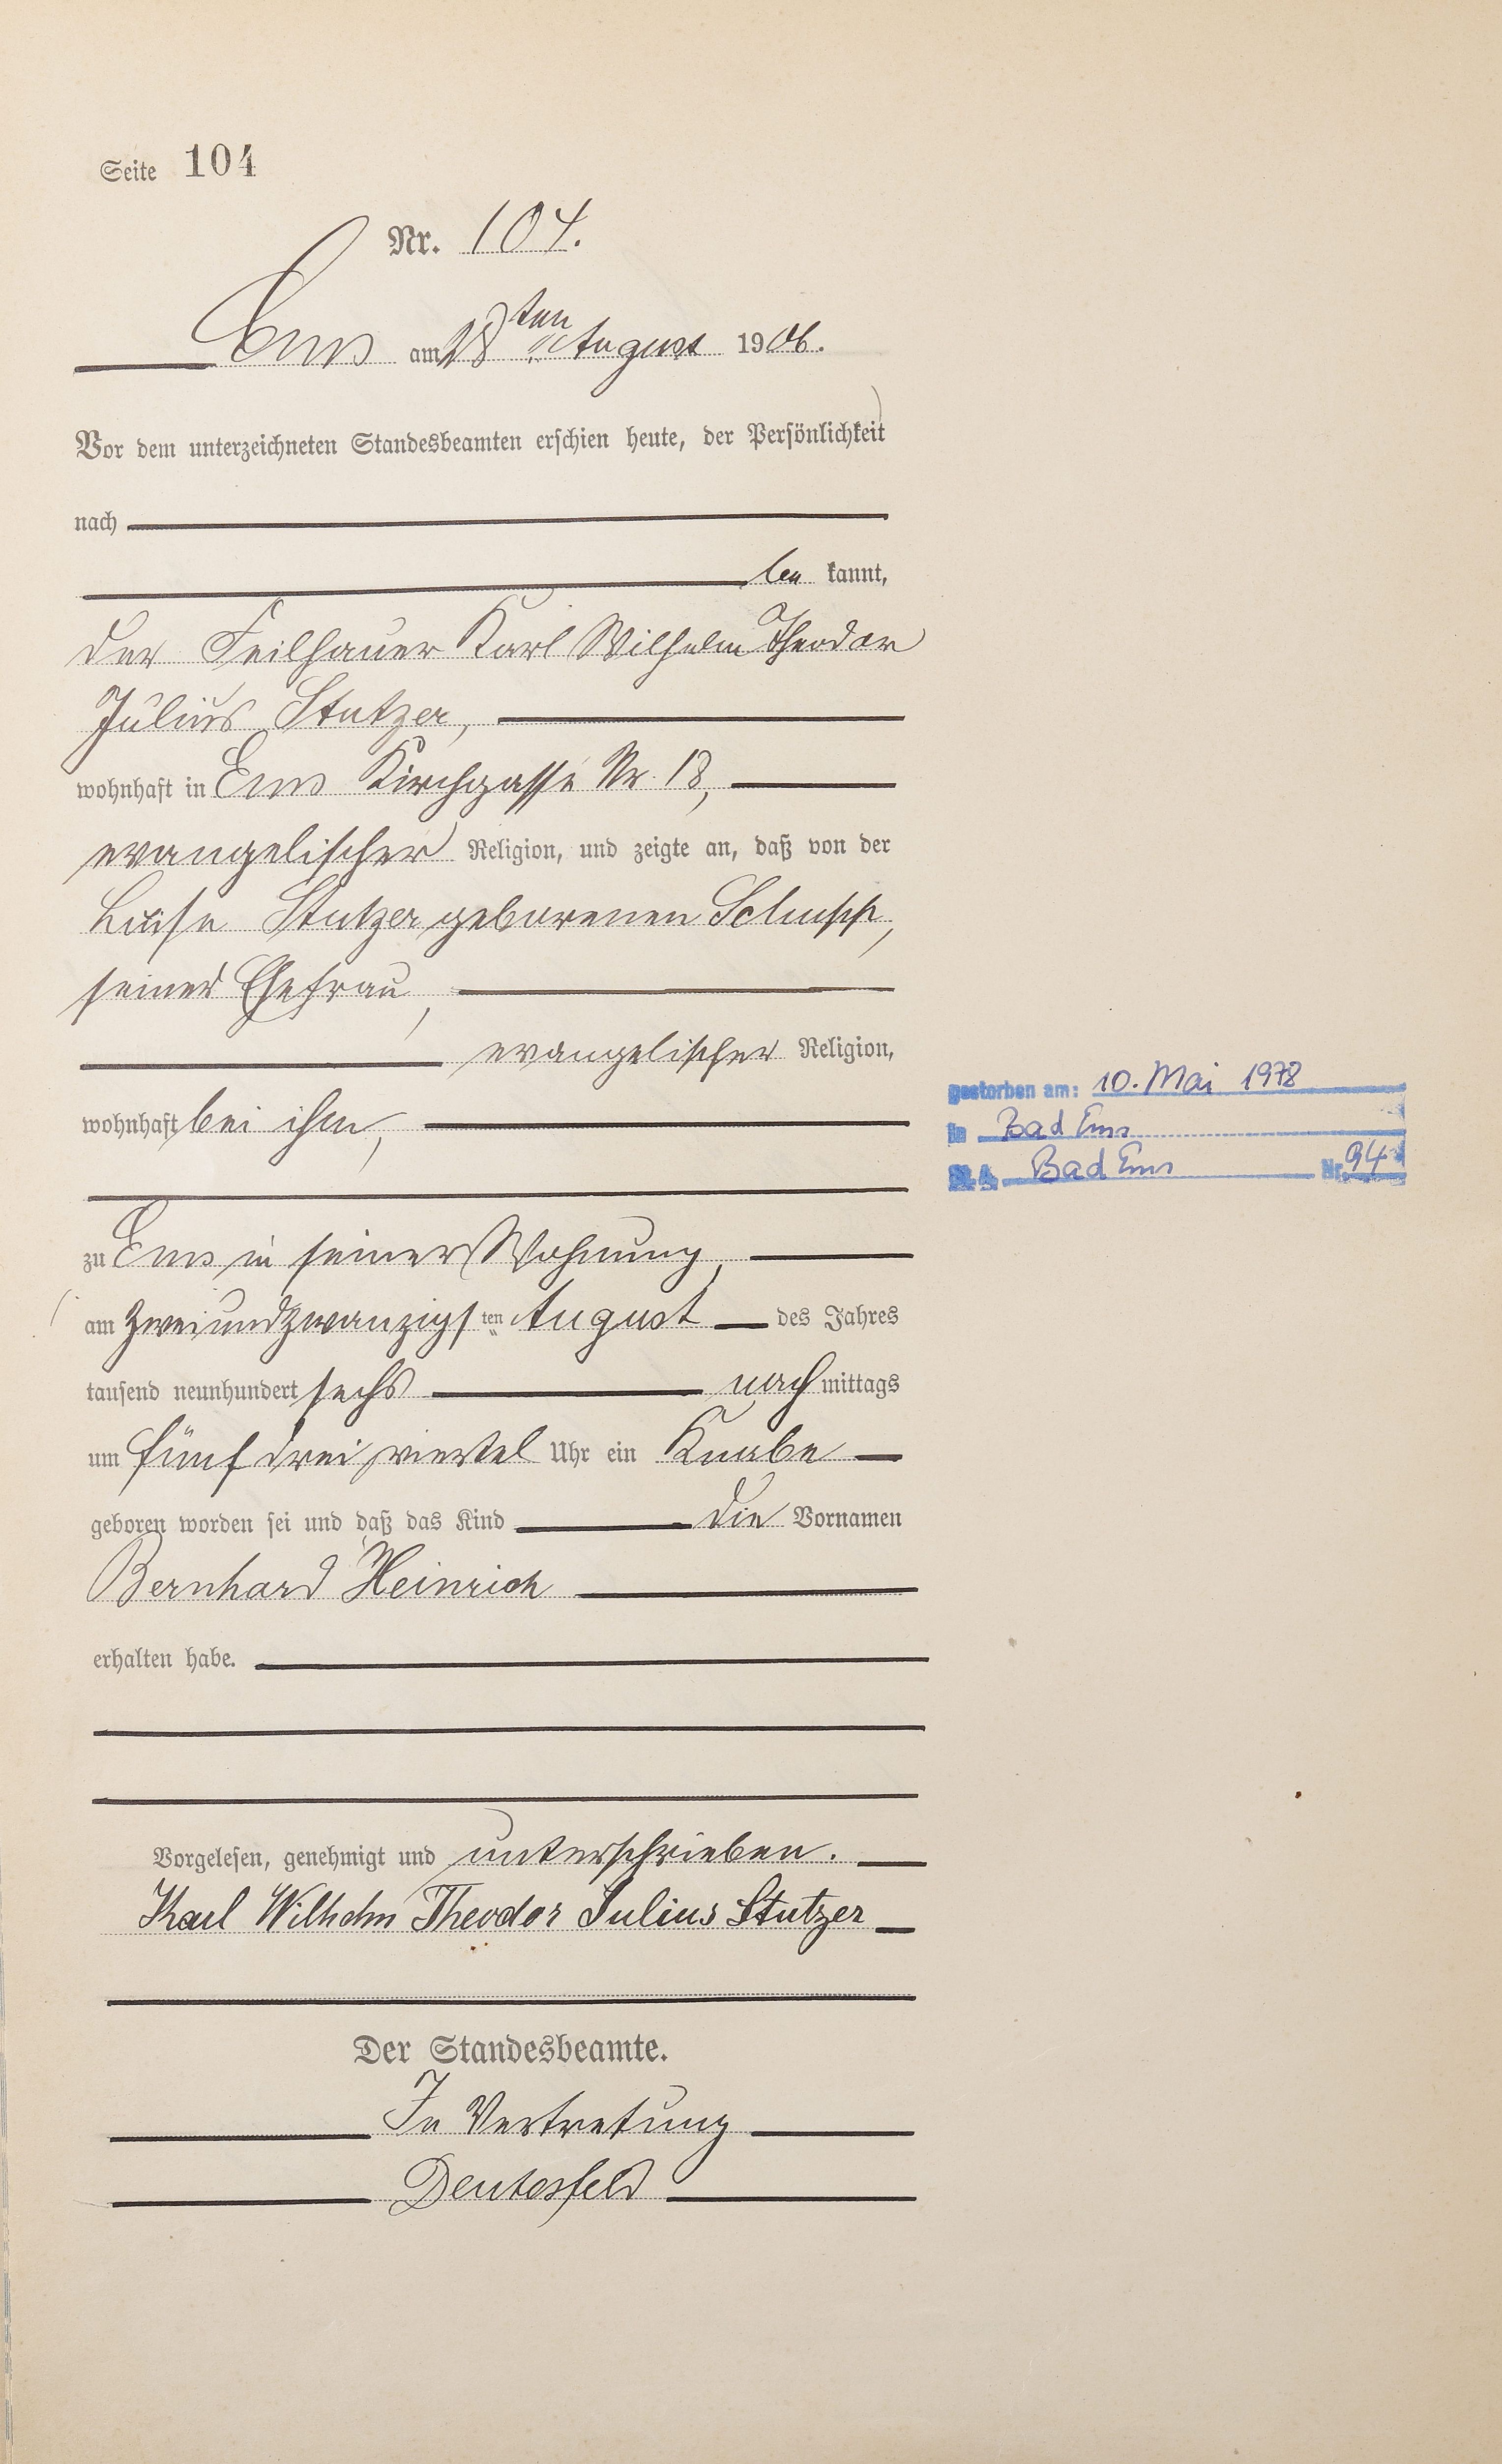 Seite 104
Nr. 104.
Ems am 28ten August 1906.
Vor dem unterzeichneten Standesbeamten erschien heute, der Persönlichkeit
nach
be kannt,
der Feilhauer Karl Wilhelm Theodor
Julius Stutzer,
wohnhaft in Ems Kirchgasse Nr. 18,
evangelischer Religion, und zeigte an, daß von der
Luise Stutzer geborenen Schupp,
seiner Ehefrau,
evangelischer Religion,
wohnhaft bei ihm,
zu Ems in seiner Wohnung,
am zweiundzwanzigsten August des Jahres
tausend neunhundert sechs nachmittags
um fünf drei viertel Uhr ein Knabe
geboren worden sei und daß das Kind die Vornamen
Bernhard Heinrich
erhalten habe.
Vorgelesen, genehmigt und unterschrieben.
Karl Wilhelm Theodor Julius Stutzer
Der Standesbeamte.
In Vertretung
gestorben am: 10. Mai 1978
in Bad Ems
St. A. Bad Ems Nr. 94